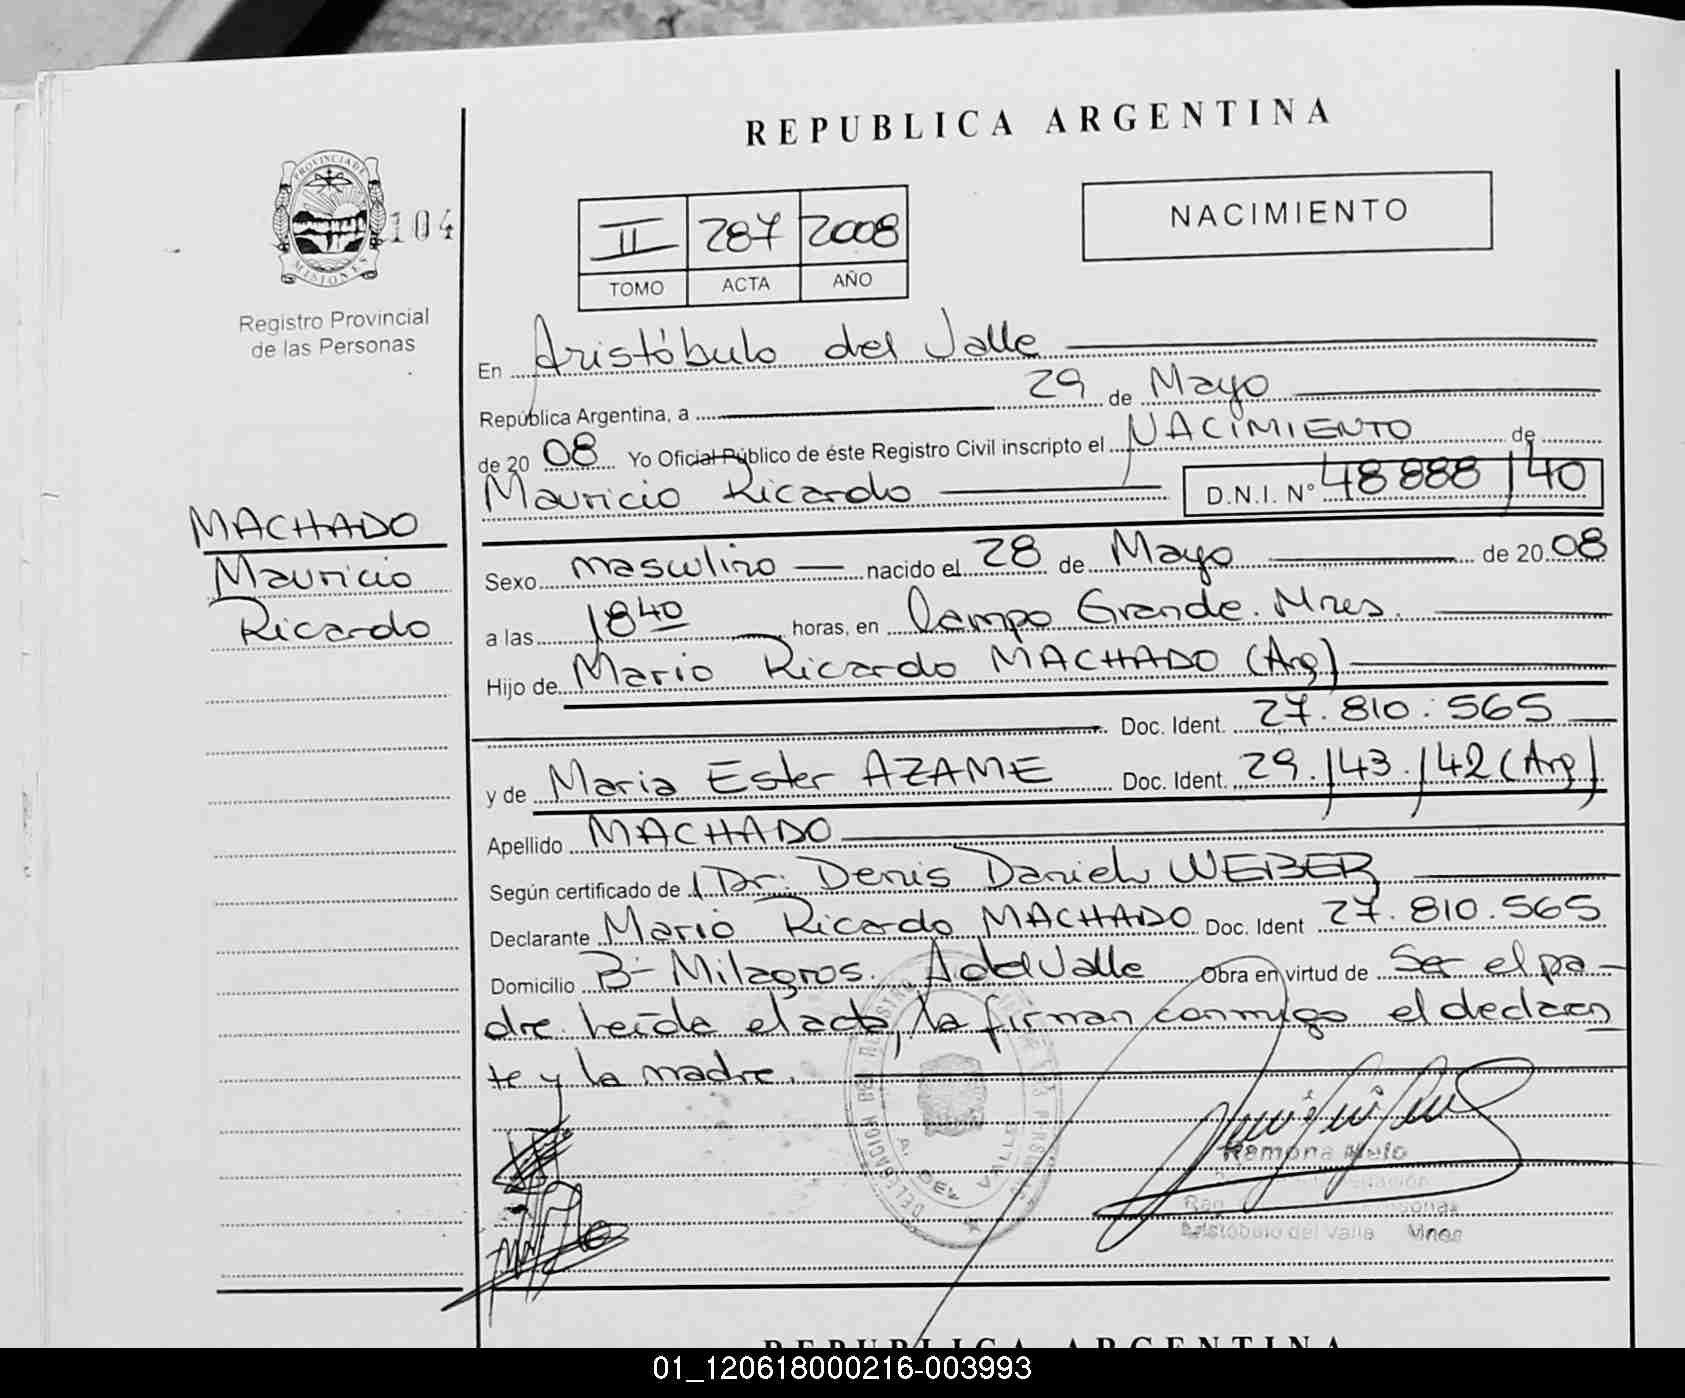 REPUBLICA ARGENTINA
PROVINCIA DE
MISIONES
104
Registro Provincial
de las Personas
II 287 2008
TOMO ACTA AÑO
NACIMIENTO
En Aristóbulo del Valle
República Argentina, a 29 de Mayo
de 20 08 Yo Oficial Público de éste Registro Civil inscripto el NACIMIENTO de
Mauricio Ricardo D.N.I. Nº 48 888 140
MACHADO
Mauricio
Ricardo
Sexo masculino nacido el 28 de Mayo de 20 08
a las 18 40 horas, en Campo Grande. Mnes.
Hijo de Mario Ricardo MACHADO (Arg)
Doc. Ident. 27.810.565
y de Maria Ester AZAME Doc. Ident. 29.143.142 (Arg)
Apellido MACHADO
Según certificado de Dr. Denis Daniel WEBER
Declarante Mario Ricardo MACHADO Doc. Ident 27.810.565
Domicilio Bº Milagros. A del Valle Obra en virtud de Ser el pa-
dre. Leída el acta, la firman conmigo el declaran
te y la madre.
DELEGACION DEL REGISTRO DE LAS PERSONAS
A. DEL VALLE
Ramona Melo
Aristóbulo del Valle Mnes
REPUBLICA ARGENTINA
01_120618000216-003993